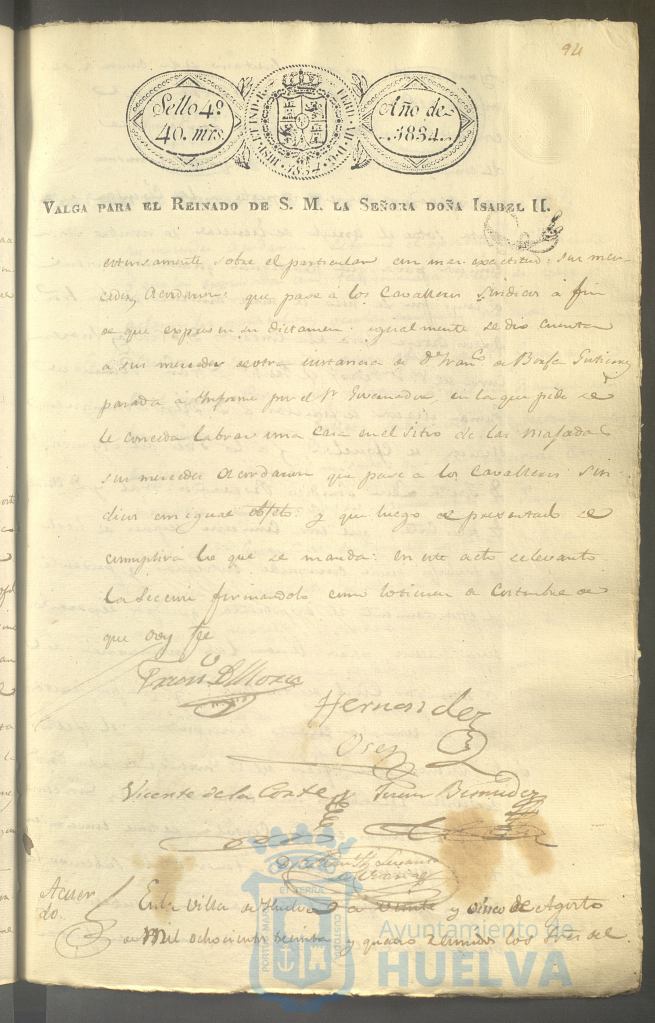 94
Sello 4º
40. mrs.
HISP. ET IND. R. FERD. VII. D. G. 1834
Año de
1834.
VALGA PARA EL REINADO DE S. M. LA SEÑORA DOÑA ISABEL II.
sobre el particular con mas exactitud: sus mer-
cedes, Acordaron: que pase á los Cavalleros Sindicos á fin
de que expresen su dictamen: igualmente se dio cuenta
a sus mercedes de otra instancia de Dn Franco de Borja Gutierrez
pasada á Informe por el Sr Governador, en la que pide se
le conceda labrar una Casa en el sitio de las
sus mercedes Acordaron que pase a los Cavalleros Sin-
dicos con igual objeto: y que luego de presentado se
cumplirá lo que se manda: en este acto se levantó
la Seccion firmandolo como lo tienen de Costumbre de
que doy fee
Hernandez
Osen
Vicente de la Corte y Bermudez
Acuer
do.
En la Villa de Huelva á veinte y cinco de Agosto
de Mil ochocientos treinta y quatro reunidos los Sres del
PORTUS MARIS ET TERRAE CUSTODIA
Ayuntamiento de
HUELVA